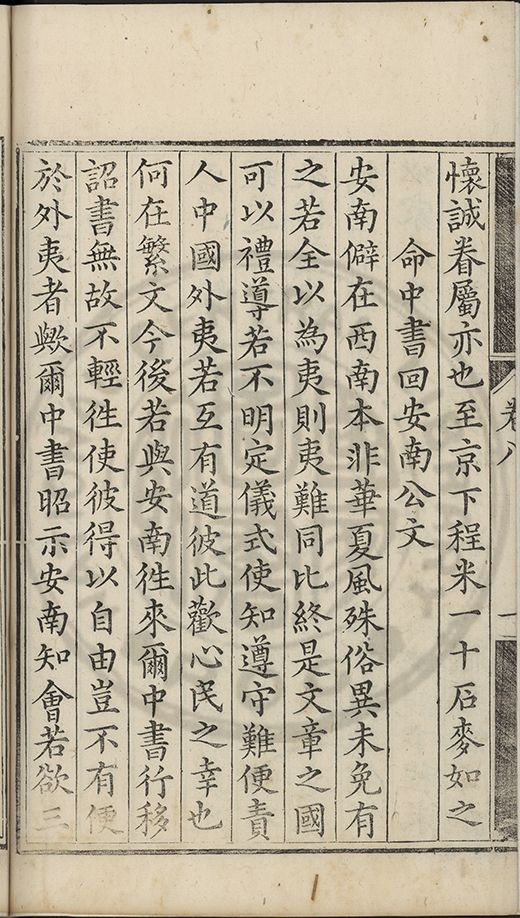 卷八
懷誠眷屬亦也至京下程米一十石麥如之
命中書回安南公文
安南僻在西南本非華夏風殊俗異未免有
之若全以為夷則夷難同比終是文章之國
可以禮導若不明定儀式使知遵守難便責
人中國外夷若互有道彼此歡心民之幸也
何在繁文今後若與安南徃來爾中書行移
詔書無故不輕徃使彼得以自由豈不有便
於外夷者歟爾中書昭示安南知會若欲三